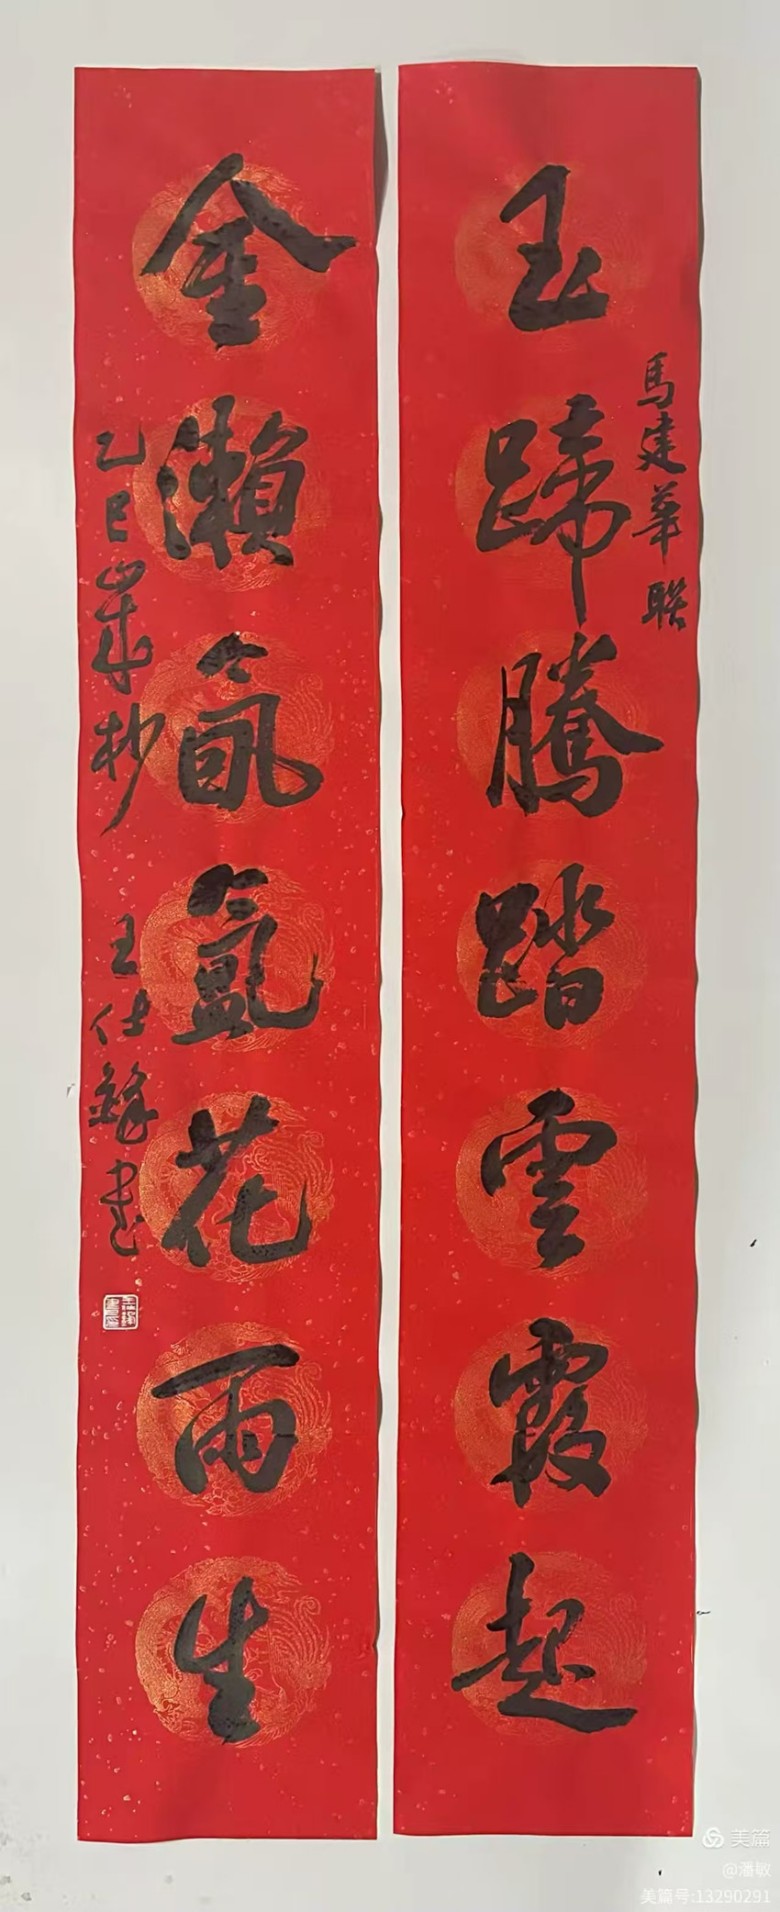 玉蹄騰踏雲霞起
馬建華联
金瀨氤氲花雨生
乙巳歲杪
王仕鋒書
美篇
@潘敏
美篇号:13290291